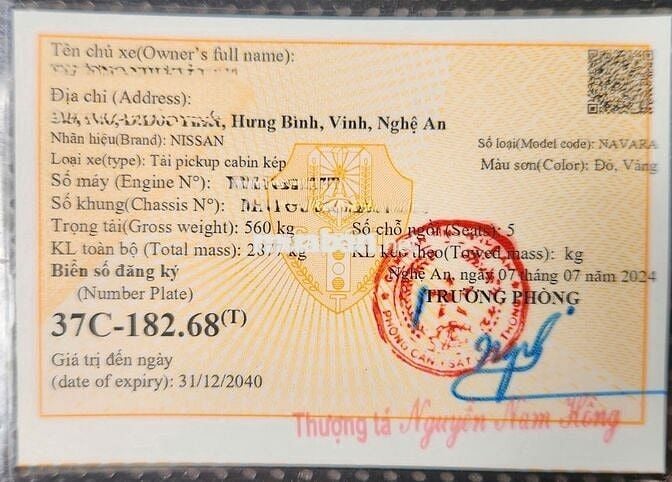 Tên chủ xe(Owner's full name):
Địa chỉ (Address):
Hưng Bình, Vinh, Nghệ An
Nhãn hiệu(Brand): NISSAN
Số loại(Model code): NAVARA
Loại xe(type): Tải pickup cabin kép
Màu sơn(Color): Đỏ, Vàng
Số máy (Engine N°):
Số khung(Chassis N°):
Trọng tải(Gross weight): 560 kg
Số chỗ ngồi(Seats): 5
KL toàn bộ (Total mass): kg
KL kéo theo(Towed mass): kg
Biển số đăng ký
Nghệ An, ngày 07 tháng 07 năm 2024
(Number Plate)
TRƯỞNG PHÒNG
37C-182.68(T)
Giá trị đến ngày
(date of expiry): 31/12/2040
Thượng tá Nguyễn Nam Hồng